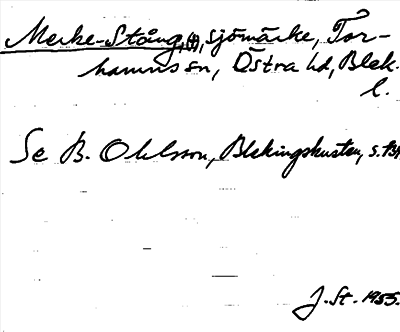 Merke-Stång, (†), sjömärke, Tor-
hamns sn, Östra hd, Blek.
l.
Se B. Ohlsson, Blekingskusten, s.
J. St. 1955.